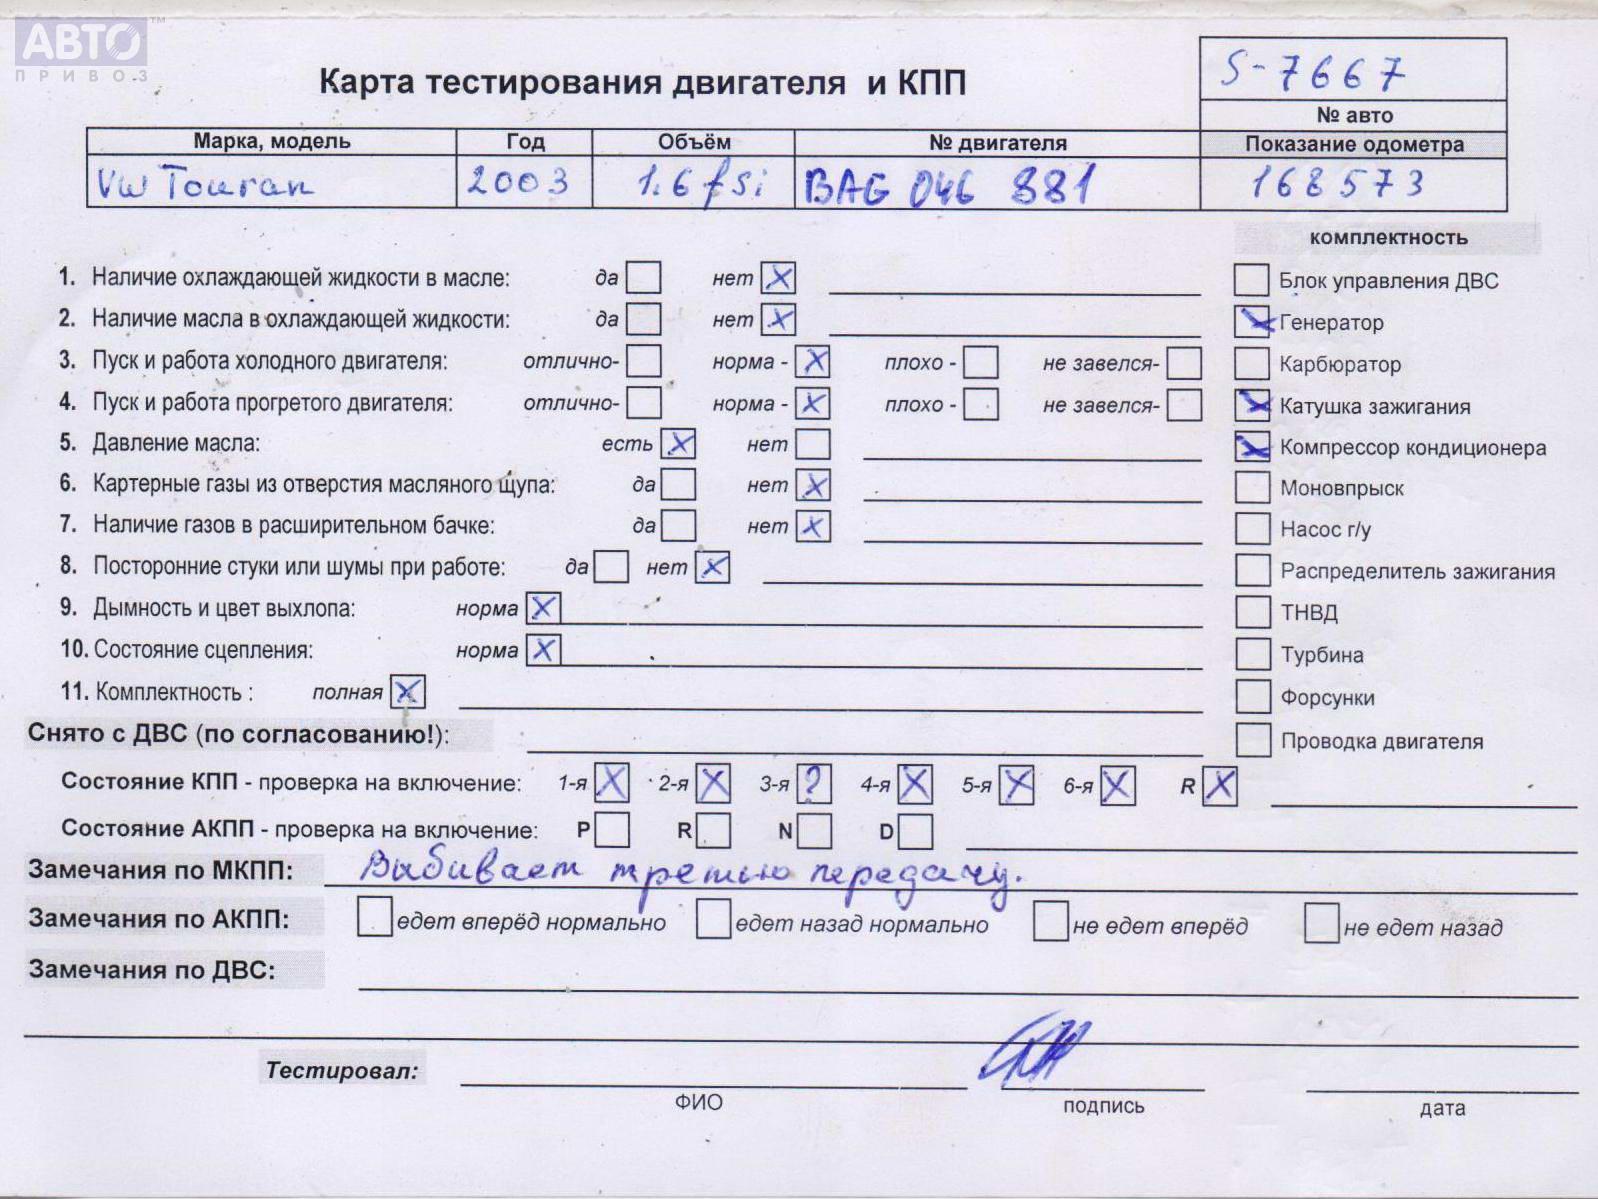 АВТО™
ПРИВОЗ
S-7667
Карта тестирования двигателя и КПП
№ авто
Марка, модель Год Объём № двигателя Показание одометра
VW Touran 2003 1.6 fsi BAG 046 881 168573
комплектность
1. Наличие охлаждающей жидкости в масле: да нет X
Блок управления ДВС
2. Наличие масла в охлаждающей жидкости: да нет X
X Генератор
3. Пуск и работа холодного двигателя: отлично- норма - X плохо - не завелся-
Карбюратор
4. Пуск и работа прогретого двигателя: отлично- норма - X плохо - не завелся-
X Катушка зажигания
5. Давление масла: есть X нет
X Компрессор кондиционера
6. Картерные газы из отверстия масляного щупа: да нет X
Моновпрыск
7. Наличие газов в расширительном бачке: да нет X
Насос г/у
8. Посторонние стуки или шумы при работе: да нет X
Распределитель зажигания
9. Дымность и цвет выхлопа: норма X
ТНВД
10. Состояние сцепления: норма X
Турбина
11. Комплектность : полная X
Форсунки
Снято с ДВС (по согласованию!):
Проводка двигателя
Состояние КПП - проверка на включение: 1-я X 2-я X 3-я ? 4-я X 5-я X 6-я X R X
Состояние АКПП - проверка на включение: P R N D
Замечания по МКПП: Выбивает третью передачу.
Замечания по АКПП: едет вперёд нормально едет назад нормально не едет вперёд не едет назад
Замечания по ДВС:
Тестировал:
ФИО подпись дата